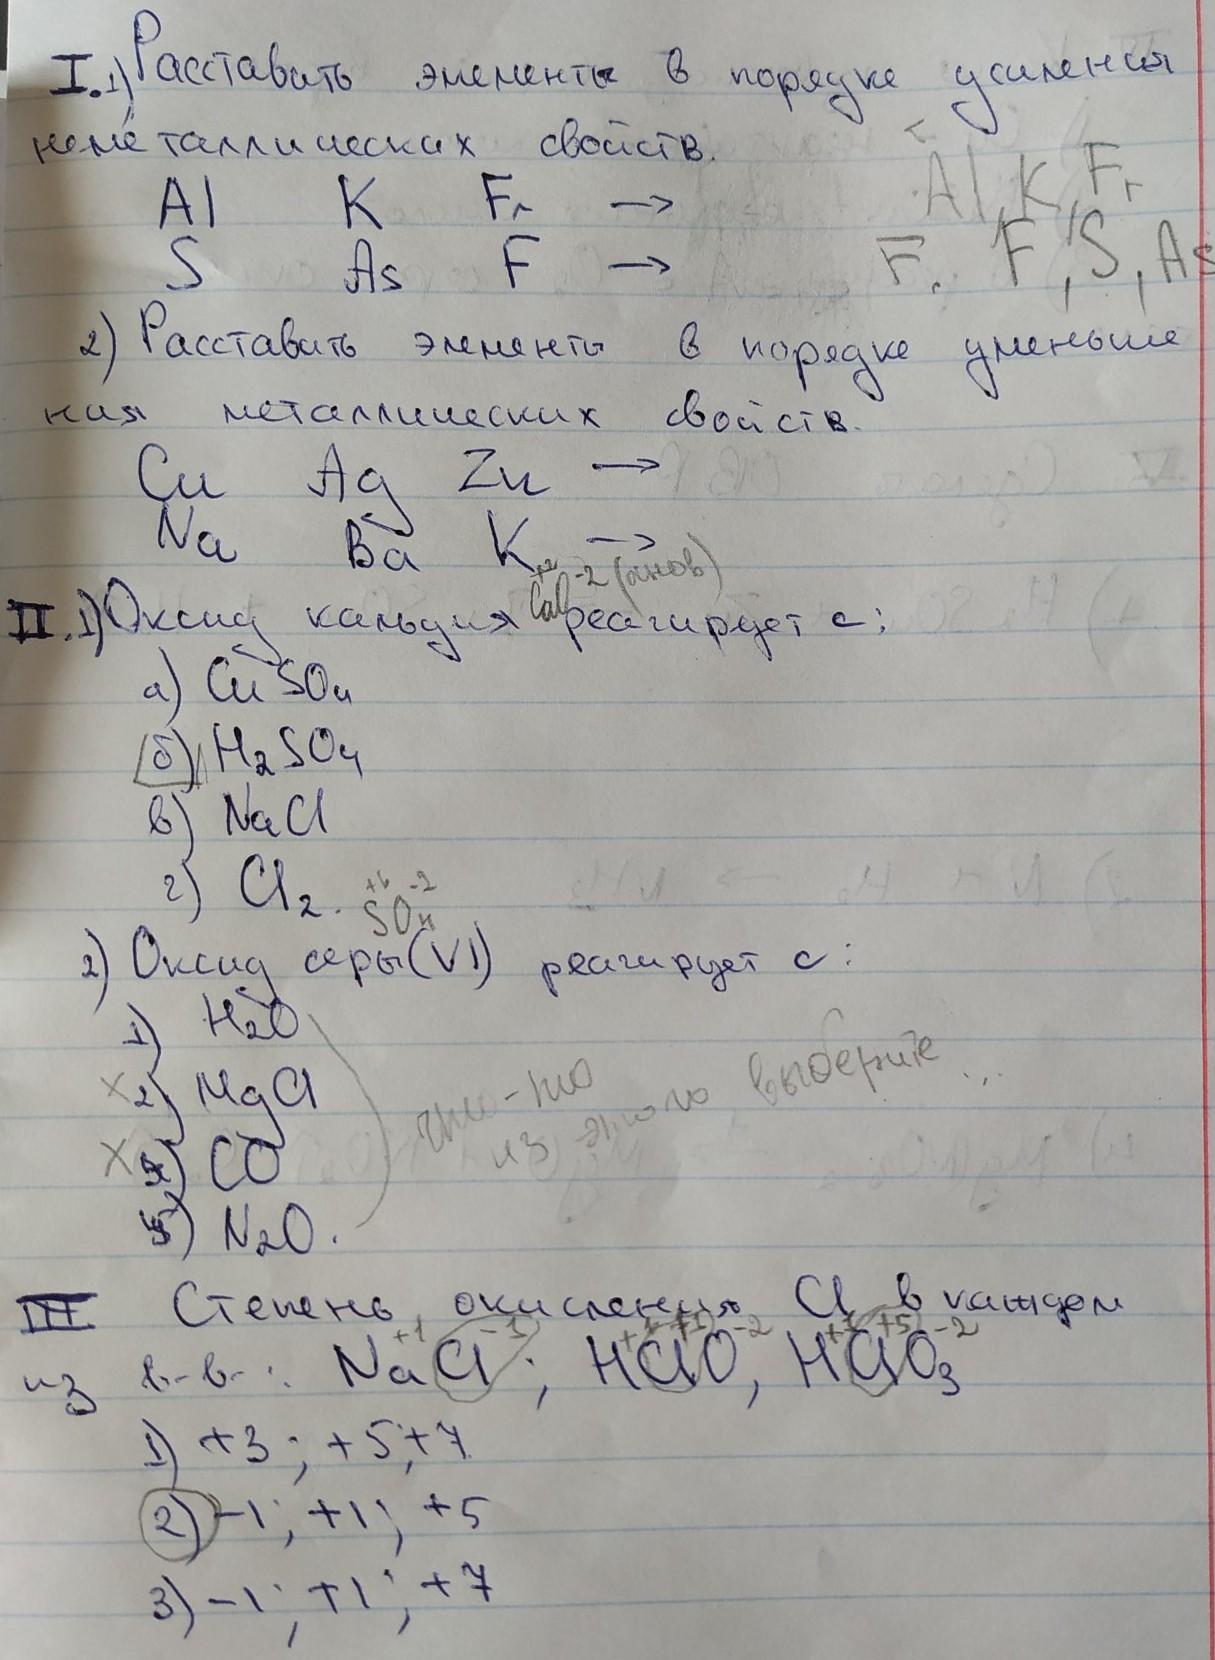 I. 1) Расставить элементы в порядке усиления
неметаллических свойств.
Al K Fr → Al, K, Fr
S As F → F, S, As
2) Расставить элементы в порядке уменьше
ния металлических свойств.
Cu Ag Zn →
Na Ba K →
+2 -2 (основ)
CaO
II. 1) Оксид кальция реагирует с:
а) CuSO4
б) H2SO4
в) NaCl
г) Cl2.
+6 -2
SO4
2) Оксид серы (VI) реагирует с:
1) H2O
x 2) MgCl
x 3) CO
5) N2O.
что-то
из этого выберите...
III Степень окисления Cl в каждом
+1 -1 +1 +1 -2 +1 +5 -2
из в-в: NaCl; HClO, HClO3
1) +3; +5; +7
2) -1; +1; +5
3) -1; +1; +7